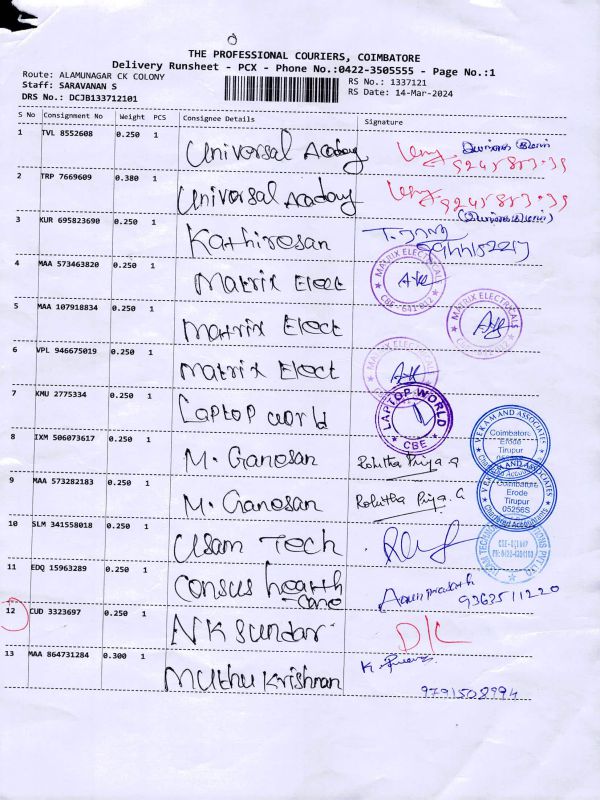 THE PROFESSIONAL COURIERS, COIMBATORE
Delivery Runsheet - PCX - Phone No.:0422-3505555 - Page No.:1
Route: ALAMUNAGAR CK COLONY
RS No.: 1337121
Staff: SARAVANAN S
RS Date: 14-Mar-2024
DRS No.: DCJB133712101
S No Consignment No Weight PCS Consignee Details Signature
1 TVL 8552608 0.250 1 Universal Acaday
2 TRP 7669609 0.380 1 Universal Acaday
3 KUR 695823690 0.250 1 Kathiresan
4 MAA 573463820 0.250 1 Matrix Elect MATRIX ELECTRICALS
5 MAA 107918834 0.250 1 Matrix Elect MATRIX ELECTRICALS
6 VPL 946675019 0.250 1 Matrix Elect MATRIX ELECTRICALS
7 KMU 2775334 0.250 1 Laptop world LAPTOP WORLD CBE
8 IXM 506073617 0.250 1 M. Ganesan Rohitha Priya G VEKAM AND ASSOCIATES Coimbatore Erode Tirupur
9 MAA 573282183 0.250 1 M. Ganesan Rohitha Priya. G AND ASSOCIATES Coimbatore Erode Tirupur 05256S Chartered Accountants
10 SLM 341558018 0.250 1 Usam Tech
11 EDQ 15963289 0.250 1 Consus hearth care 9363511220
12 CUD 3323697 0.250 1 NK Sundar D/L
13 MAA 864731284 0.300 1 Muthu Krishnan
9791508994